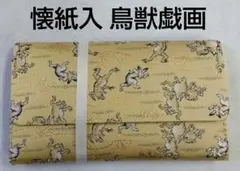 懐紙入 鳥獣戯画